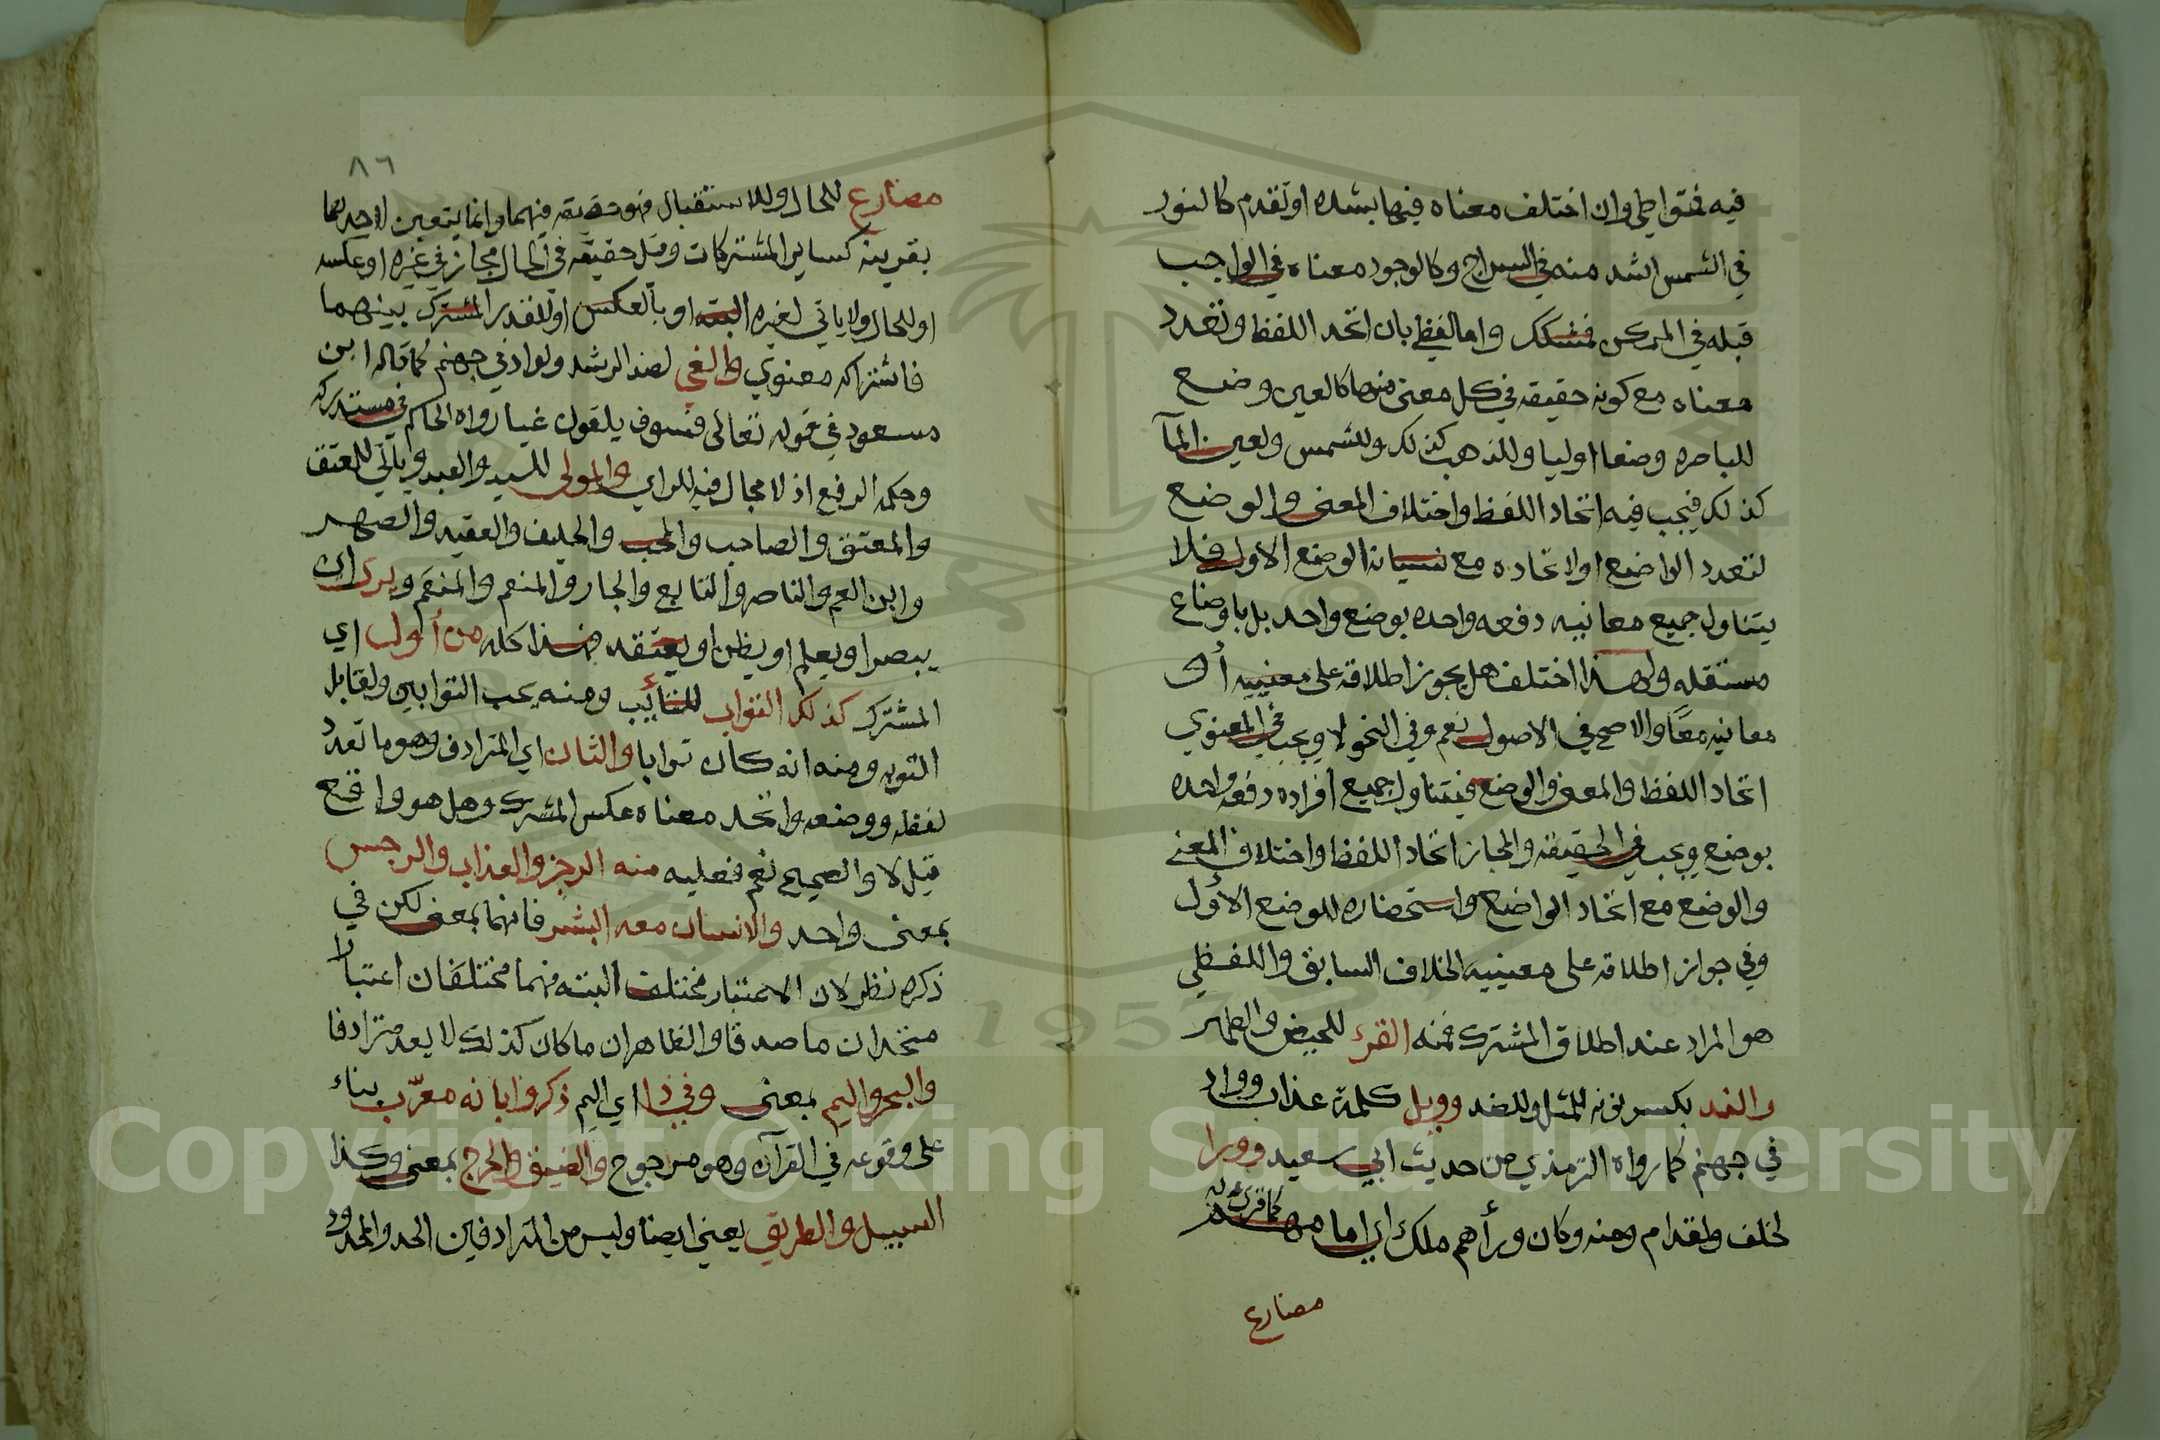 فيه فمتواطي وان اختلف معناه فيها بشده او تقدم كالنور
في الشمس اشد منه في السراج وكالوجود معناه في الواجب
قبله في الممكن فمشكك واما لفظي بان اتحد اللفظ وتعدد
معناه مع كونه حقيقه في كل معنى منها كالعين وضع
للباصره وضعا اوليا وللذهب كذلك وللشمس ولعين المآ
كذلك فيجب فيه اتحاد اللفظ واختلاف المعنى والوضع
لتعدد الواضع او لاتحاده مع نسيانه الوضع الاول فلا
يتناول جميع معانيه دفعه واحده بوضع واحد بل باوضاع
مستقله ولهذا اختلف هل يجوز اطلاقه على معنييه أو
معانيه معًا والاصح في الاصول نعم وفي النحو لا ويجب في المعنوي
اتحاد اللفظ والمعنى والوضع فيتناول جميع افراده دفعه واحده
بوضع ويجب في الحقيقه والمجاز اتحاد اللفظ واختلاف المعنى
والوضع مع اتحاد الواضع واستحضاره للوضع الأول
وفي جواز اطلاقه على معنييه الخلاف السابق واللفظي
هو المراد عند اطلاق المشترك فمنه القرء للحيض والطهر
والند بكسر نونه للمثل وللضد وويل كلمة عذاب وواد
في جهنم كما رواه الترمذي من حديث ابي سعيد وورا
لخلف ولقدام ومنه وكان ورأهم ملك اي امامهم كما قرئ به
مضارع
٨٦
مضارع للحال وللاستقبال فهو حقيقه فيهما وانما يتعين لاحدهما
بقرينه كساير المشتركات وقيل حقيقه في الحال مجاز في غيره او عكسه
او للحال ولا ياتي لغيره البته او بالعكس او للقدر المشترك بينهما
فاشتراكه معنوي والغي لضد الرشد ولواد في جهنم كما قاله ابن
مسعود في قوله تعالى فسوف يلقون غيا رواه الحاكم في مستدركه
وحكمه الرفع اذ لا مجال فيه للراي والمولى للسيد والعبد وياتي للمعتق
والمعتق والصاحب والمحب والحليف والعقيد والصهر
وابن العم والناصر والتابع والجار والمنعم والمنعَم ويرى اي
يبصر او يعلم او يظن او يعتقد فهذا كله من أول اي
المشترك كذلك التواب للتائب ومنه يحب التوابين ولقابل
التوبه ومنه انه كان توابا والثان اي المترادف وهو ما تعدد
لفظه ووضعه واتحد معناه عكس المشترك وهل هو واقع
قيل لا والصحيح نعم فعليه منه الرجز والعذاب والرجس
بمعنى واحد والانسان معه البشر فانهما بمعنى لكن في
ذكره نظر لان الاعتبار مختلف البته فهما مختلفان اعتبارا
متحدان ما صدقا والظاهر ان ما كان كذلك لا يعد مترادفا
والبحر واليم بمعنى وفي ذا اي اليم ذكروا بانه معرّب بناء
على وقوعه في القرآن وهو مرجوح والضيق والحرج بمعنى وكذا
السبيل والطريق يعني ايضا وليس من المترادفين الحد والمحدود
Copyright © King Saud University
1957